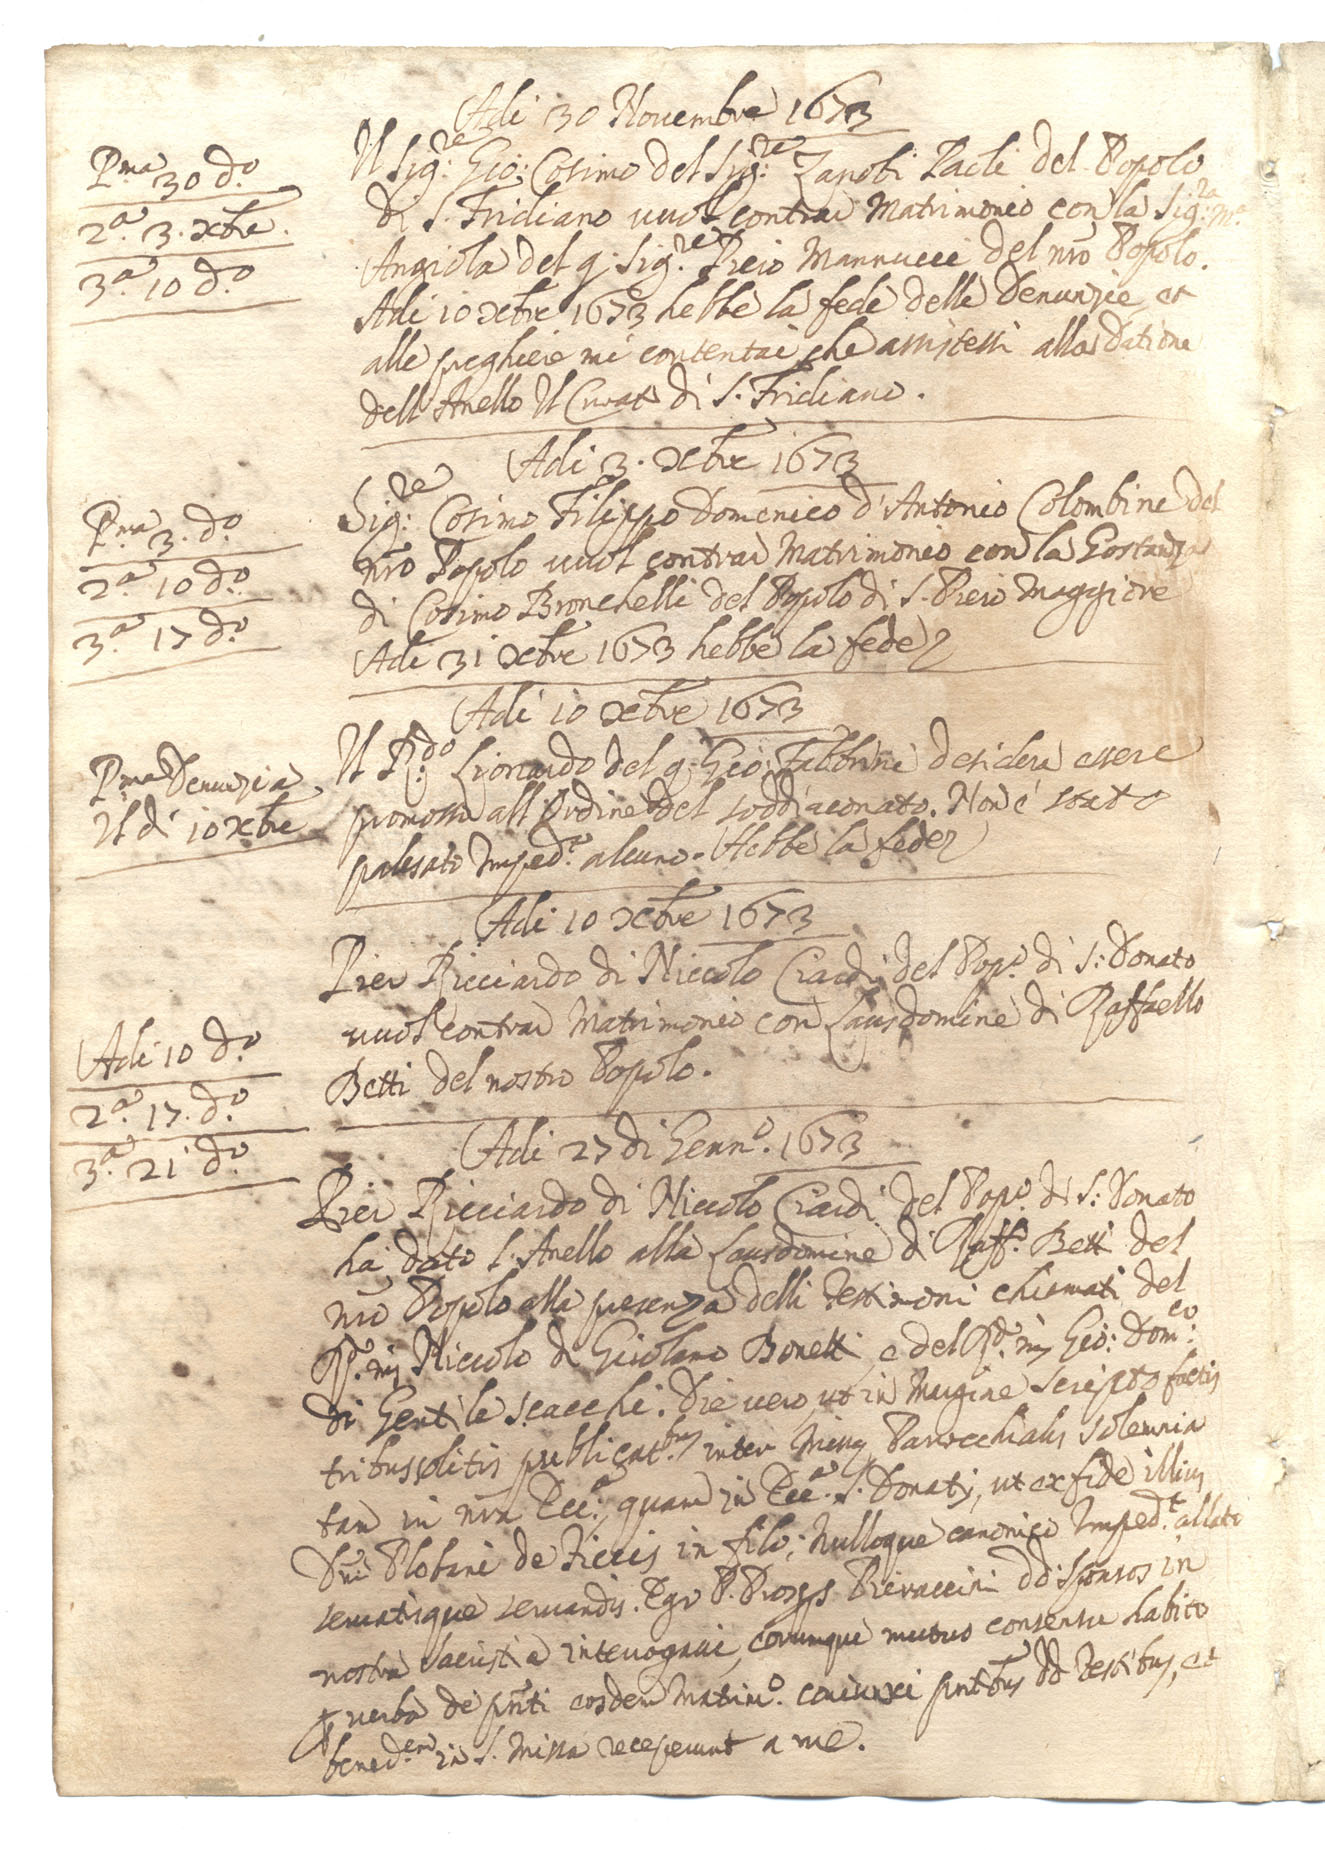 Adi 30 Novembre 1673
P.ma 30 d.o
2.a 3. Xbre.
3.a 10 d.o
Il Sig:re Gio: Cosimo del Sig:re Zanobi Paoli del Popolo
di S. Fridiano vuol contrar Matrimonio con la Sig:ra M.a
Angiola del q: Sig.re Piero Mannucci del nro Popolo.
Adi 10 Xbre 1673 hebbe la fede delle Denunzie, et
alle preghiere mi contentai che assistessi alla Datione
dell Anello Il Curato di S. Fridiano.
Adi 3. Xbre 1673
P.ma 3. d.o
2.a 10 d.o
3.a 17 d.o
Sig:re Cosimo Filippo Domenico d'Antonio Colombine del
nro Popolo vuol contrar Matrimonio con la Gostanza
di Cosimo Bronchelli del Popolo di S. Piero Maggiore
Adi 31 Xbre 1673 hebbe la fede
Adi 10 Xbre 1673
P.ma Denunzia
Il di 10 Xbre
Il R:do Lionardo del q: Gio: Fabbrini desidera essere
promosso all Ordine del soddiaconato. Non e' stato
palesato Imped.to alcuno. Hebbe la fede
Adi 10 Xbre 1673
Adi 10 d.o
2.a 17. d.o
3.a 21 d.o
Pier Ricciardo di Niccolo Ciardi del Pop.o di S: Donato
vuol contrar Matrimonio con Lausdomine di Raffaello
Betti del nostro Popolo.
Adi 27 di Genn.o 1673
Pier Ricciardo di Niccolo Ciardi del Pop.o di S: Donato
ha dato l'Anello alla Lausdomine di Raff.o Betti del
nro Popolo alla presenza delli Testimoni chiamati del
Niccolo di Girolamo Bonetti, e del Gio: Dom:co
di Gentile Scacchi. Die vero, ut in Margine scripto factis
tribus solitis publicat.bus inter Parrocchialis solemnia
tam in nra Ecc.a, quam in Ecc.a S. Donati, ut ex fide illius
Plobani de in filo; Nulloque canonico Imped.to allato
servatisque servandis. Ego P. Prosp. dd: sponsos in
nostra sacristia interrogavi, eorumque mutuo consensu habito
verba de pnti eosdem Matrim.o coniunxi pntibus dd Testibus, et
bened.em in S. Missa receperunt a me.